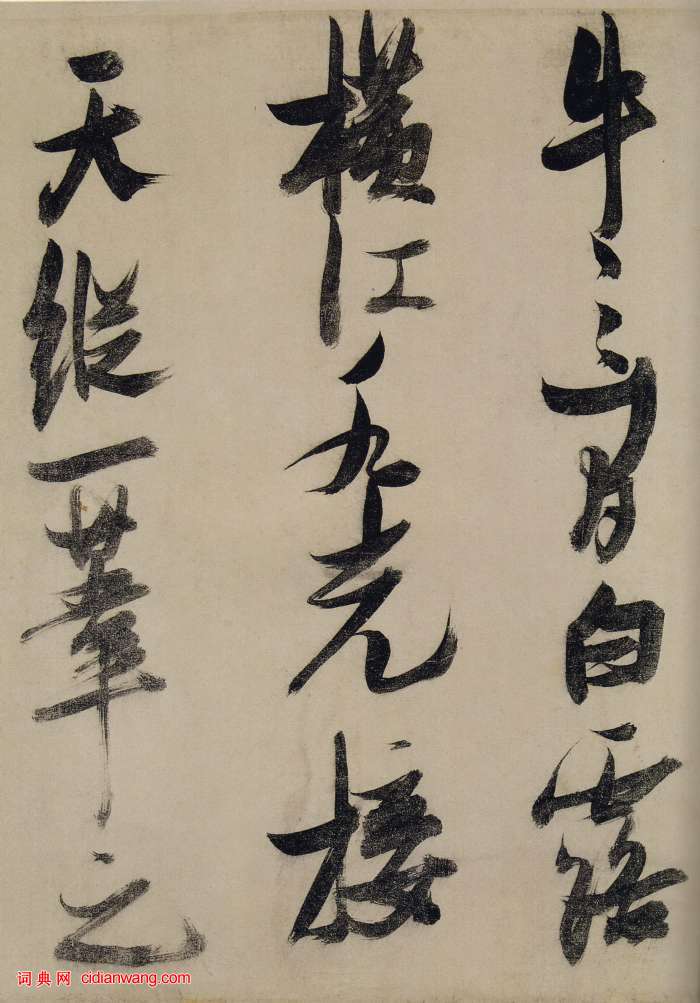 牛之間白露
橫江水光接
天縱一葦之
词典网 cidianwang.com